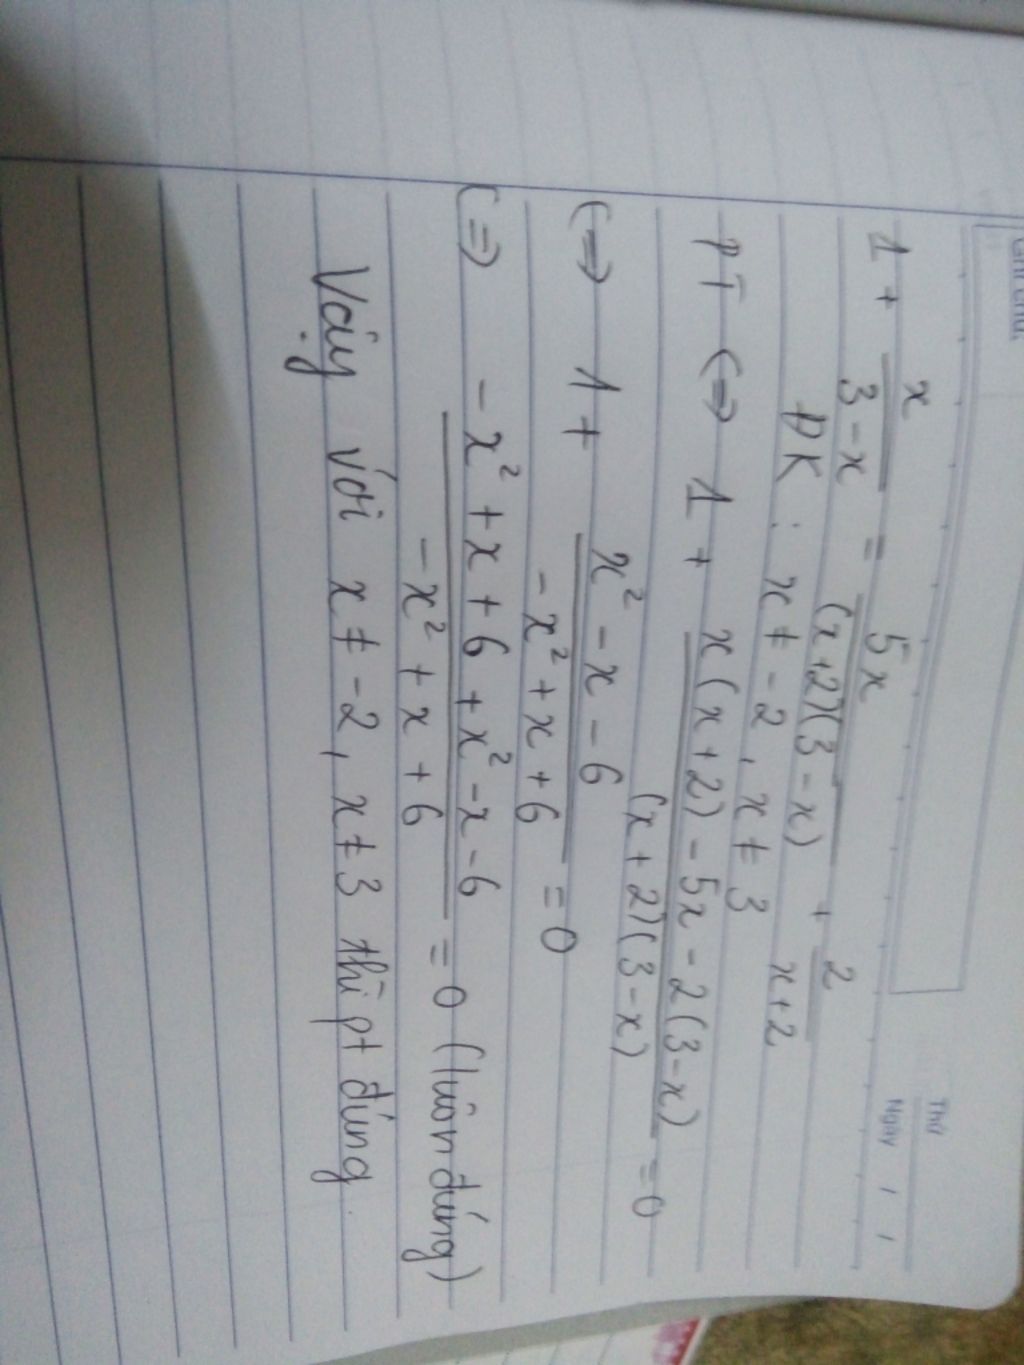 Ghi chú:
Thứ
Ngày / /
1 + x/(3-x) = 5x/((x+2)(3-x)) + 2/(x+2)
ĐK : x ≠ -2, x ≠ 3
PT <=> 1 + (x(x+2) - 5x - 2(3-x))/((x+2)(3-x)) = 0
<=> 1 + (x² - x - 6)/(-x² + x + 6) = 0
<=> (-x² + x + 6 + x² - x - 6)/(-x² + x + 6) = 0 (luôn đúng)
Vậy với x ≠ -2, x ≠ 3 thì pt đúng.